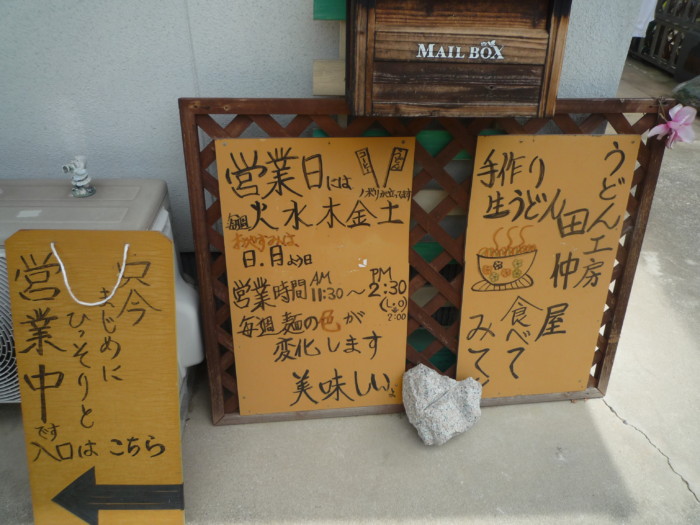 MAIL BOX
営業日には
コーヒー
うどん
ノボリが立ってます
毎週
火水木金土
おやすみは
日.月よう日
営業時間 AM 11:30～PM 2:30
毎週 麺の色が
変化します
美味しいよ
うどん工房
田仲屋
手作り
生うどん
食べて
みて!
只今
まじめに
ひっそりと
営業中です
入口は こちら